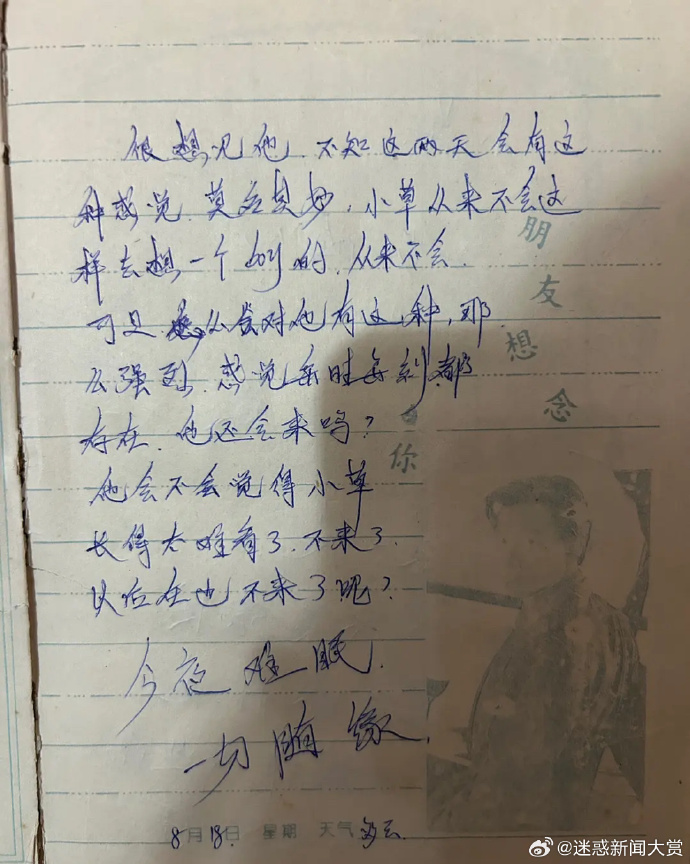 很想见他.不知这两天会有这
种感觉.莫名其妙.小草从来不会这
样去想一个boy的.从来不会.
可是 么会对他有这种,那
么强烈.感觉每时每刻都
存在.他还会来吗?
他会不会觉得小草
长得太难看了.不来了.
以后在也不来了呢?
今夜难眠.
一切随缘.
朋友想念你
8月18日 星期 天气 多云.
@迷惑新闻大赏